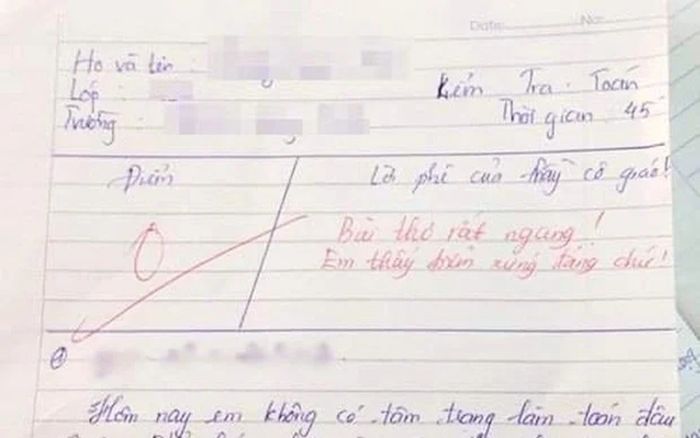 Date: No:
Họ và tên :
Lớp :
Trường :
Kiểm Tra . Toán
Thời gian 45'
Điểm
Lời phê của thầy cô giáo!
0
Bài thơ rất ngang!
Em thấy điểm xứng đáng chứ!
Hôm nay em không có tâm trạng làm toán đâu